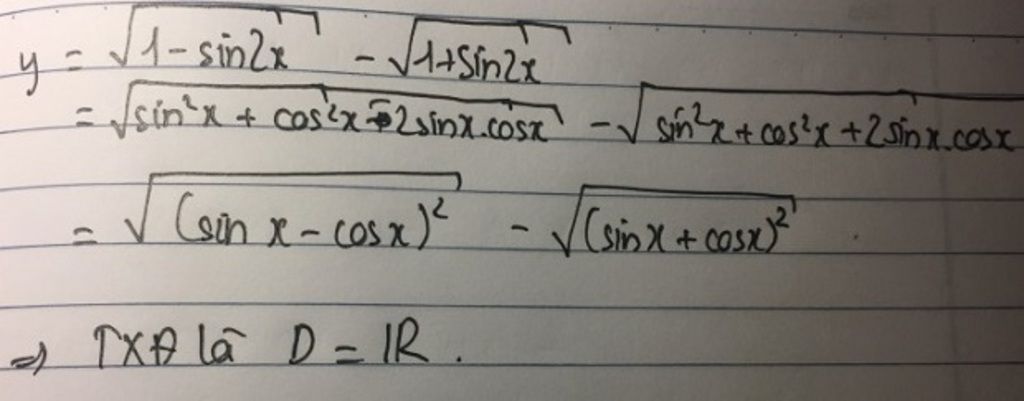 y = √(1 - sin2x) - √(1 + sin2x)
= √(sin²x + cos²x - 2sinx.cosx) - √(sin²x + cos²x + 2sinx.cosx)
= √((sin x - cosx)²) - √((sinx + cosx)²)
⇒ TXĐ là D = ℝ.